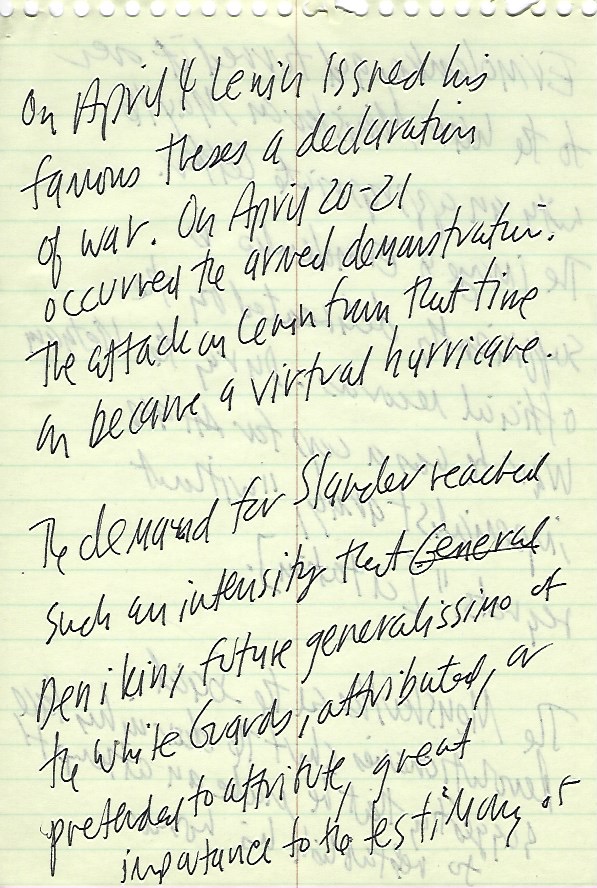 On April 4 Lenin Issued his
famous Theses a declaration
of war. On April 20-21
occurred the armed demonstration.
The attack on Lenin from that time
on became a virtual hurricane.
The demand for Slander reached
Such an intensity that General
Denikin, future generalissimo of
the White Guards, attributed, or
pretended to attribute, great
importance to the testimony of